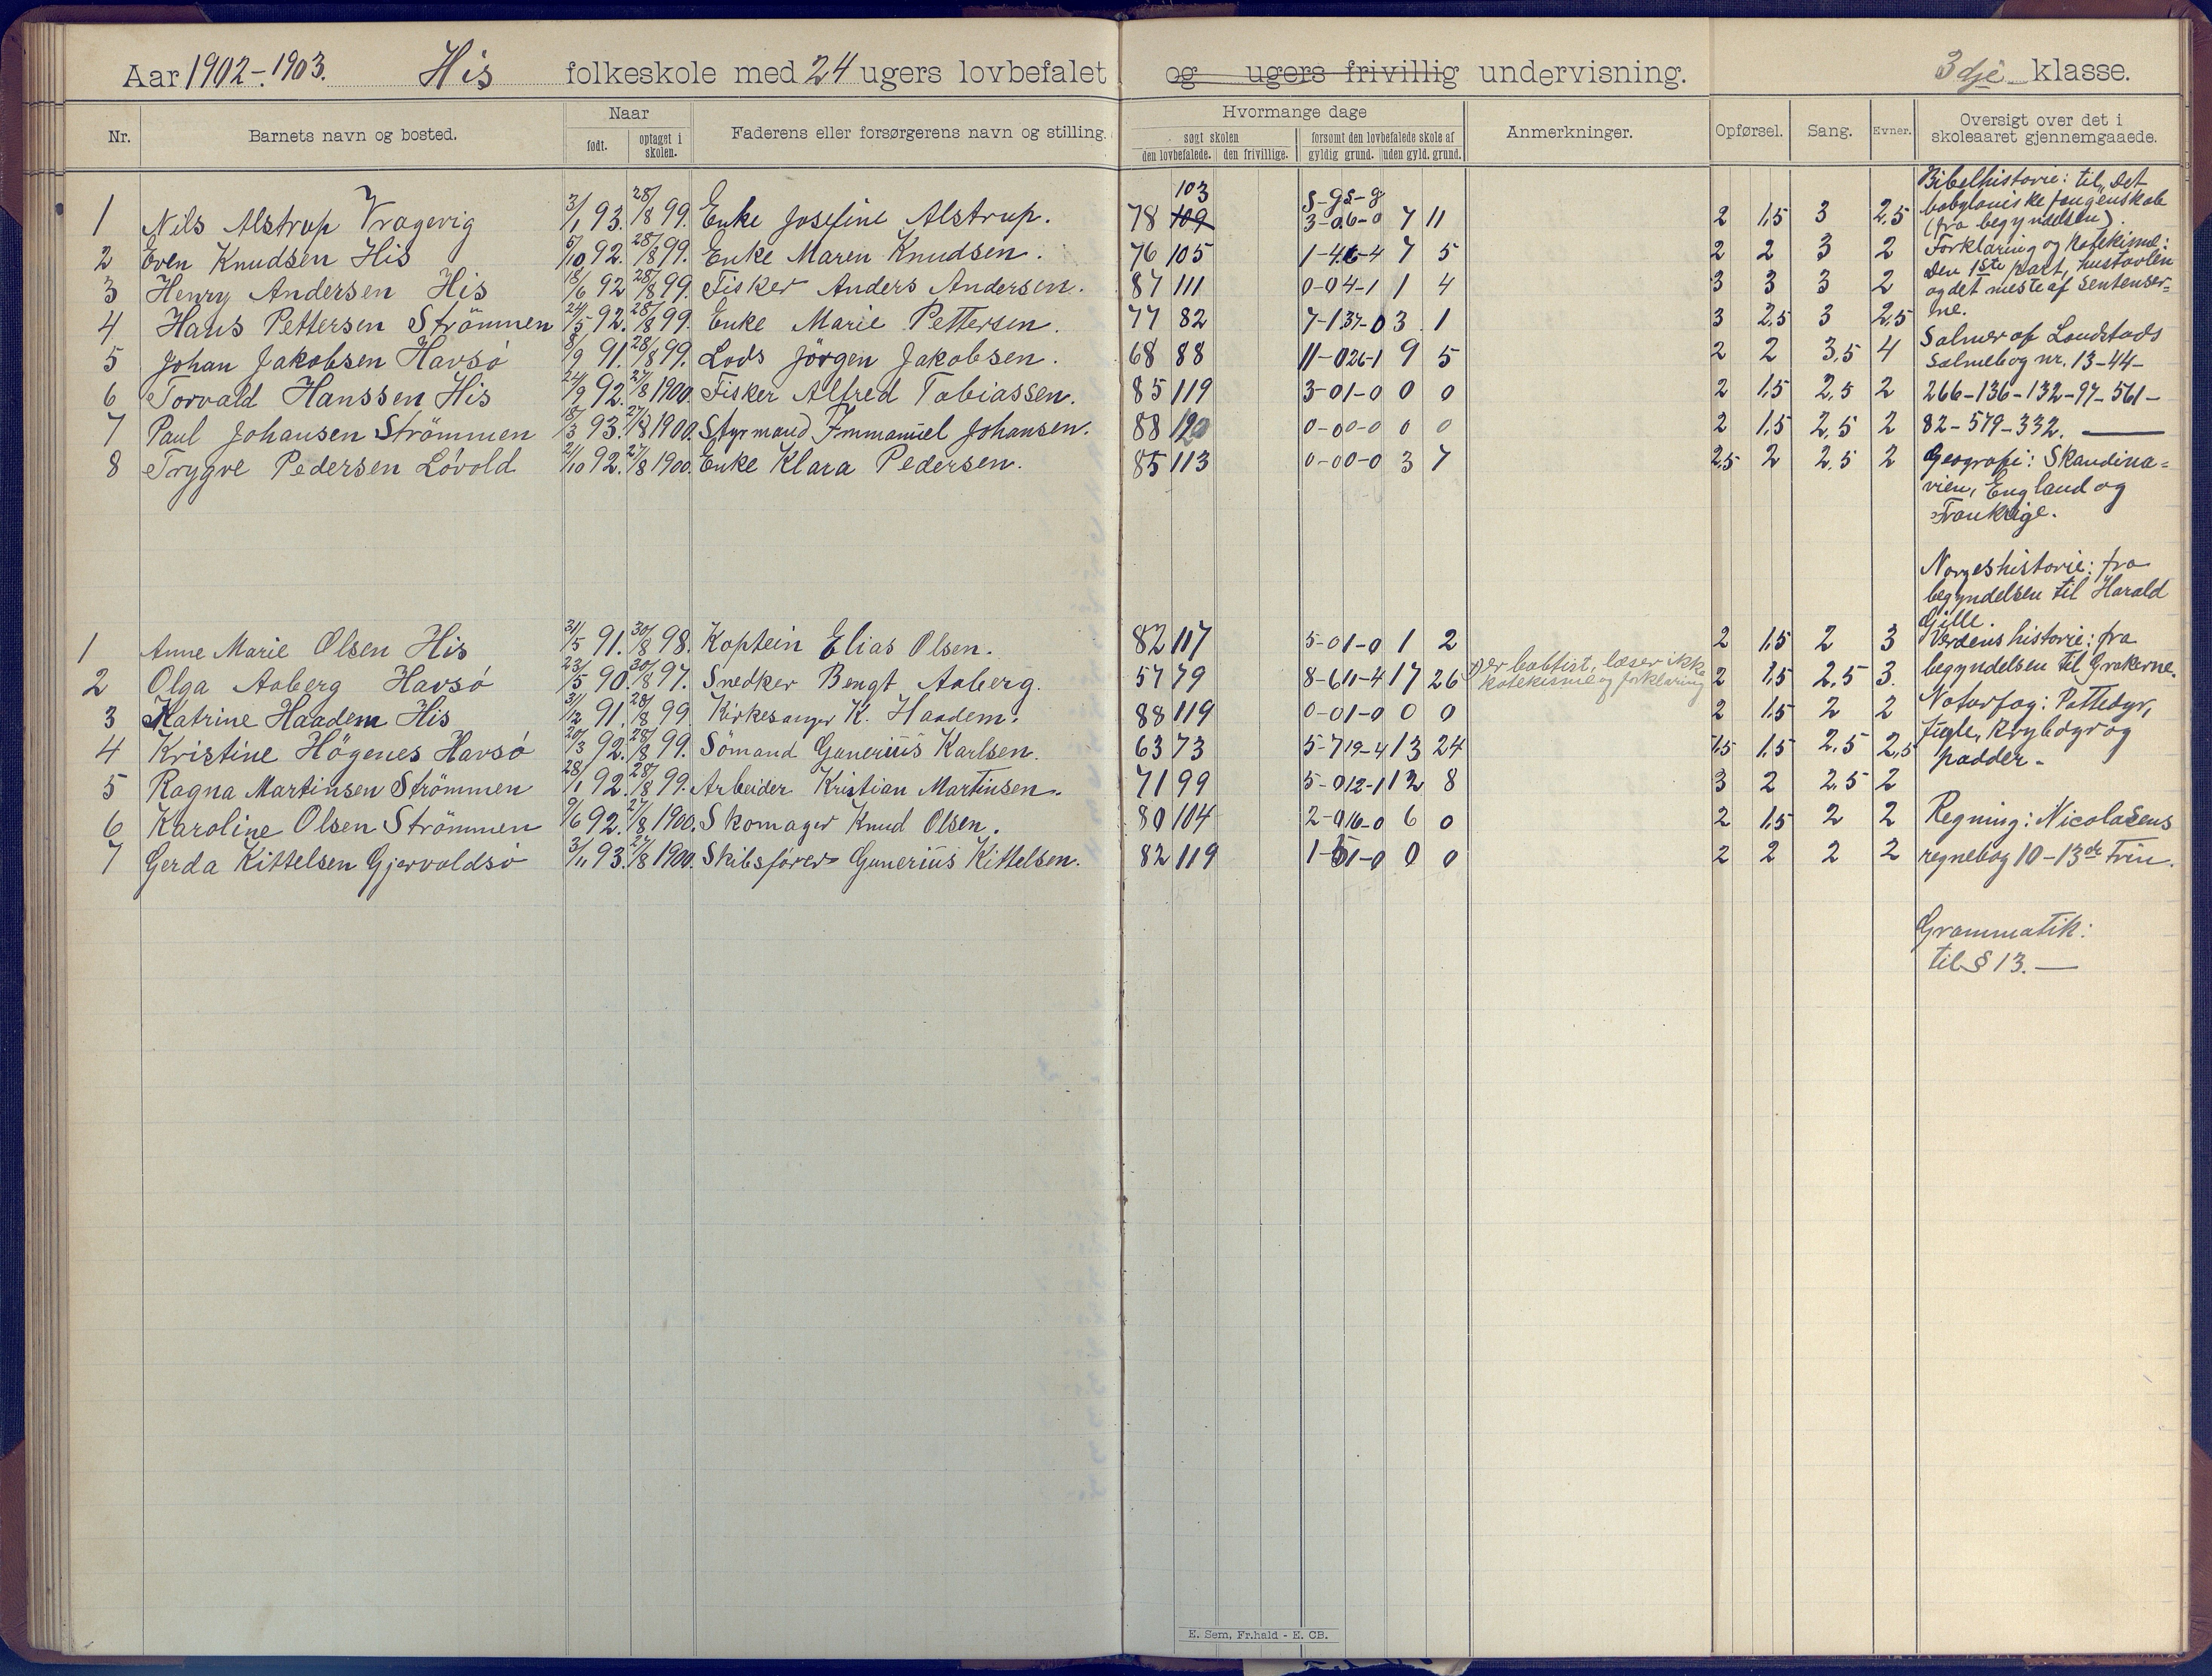 Aar 1902-1903. His folkeskole med 24 ugers lovbefalet og ugers frivillig undervisning. 3dje klasse.
Nr. Barnets navn og bosted. Naar født. optaget i skolen. Faderens eller forsørgerens navn og stilling. Hvormange dage søgt skolen den lovbefalede. den frivillige. forsømt den lovbefalede skole af gyldig grund. uden gyld. grund. Anmerkninger. Opførsel. Sang. Evner. Oversigt over det i skoleaaret gjennemgaaede.
103 s-g s-g
1 Nils Alstrup Vragevig 3/1 93. 28/8 99. Enke Josefine Alstrup. 78 109 3-0 6-0 7 11 2 1,5 3 2,5
2 Even Knudsen His 5/10 92. 28/8 99. Enke Maren Knudsen. 76 105 1-4 6-4 7 5 2 2 3 2
3 Henry Andersen His 18/6 92 28/8 99. Fisker Anders Andersen. 87 111 0-0 4-1 1 4 3 3 3 2
4 Hans Pettersen Strömmen 24/5 92. 28/8 99. Enke Marie Pettersen. 77 82 7-1 37-0 3 1 3 2,5 3 2,5
5 Johan Jakobsen Havsö 8/9 91. 28/8 99. Lods Jörgen Jakobsen. 68 88 11-0 26-1 9 5 2 2 3,5 4
6 Torvald Hanssen His 24/9 92. 27/8 1900. Fisker Alfred Tobiassen. 85 119 3-0 1-0 0 0 2 1,5 2,5 2
7 Paul Johansen Strömmen 18/3 93. 27/8 1900. Styrmand Immanuel Johansen. 88 120 0-0 0-0 0 0 2 1,5 2,5 2
8 Trygve Pedersen Lövold 2/10 92. 27/8 1900. Enke Klara Pedersen. 85 113 0-0 0-0 3 7 2,5 2 2,5 2
1 Anne Marie Olsen His 31/5 91. 30/8 98. Kaptein Elias Olsen. 82 117 5-0 1-0 1 2 2 1,5 2 3
2 Olga Aaberg Havsö 23/5 90. 30/8 97. Snedker Bengt Aaberg. 57 79 8-6 11-4 17 26 Er babtist, læser ikke katekisme og forklaring 2 1,5 2,5 3.
3 Katrine Haadem His 31/12 91. 28/8 99. Kirkesanger K. Haadem. 88 119 0-0 1-0 0 0 2 1,5 2 2
4 Kristine Högenes Havsö 20/3 92. 28/8 99. Sömand Gunerius Karlsen. 63 73 5-7 19-4 13 24 1,5 1,5 2,5 2,5
5 Ragna Martinsen Strömmen 28/1 92. 28/8 99. Arbeider Kristian Martinsen. 71 99 5-0 12-1 12 8 3 2 2,5 2
6 Karoline Olsen Strömmen 9/6 92. 27/8 1900. Skomager Knud Olsen. 80 104 2-0 16-0 6 0 2 1,5 2 2
7 Gerda Kittelsen Gjervoldsö 3/11 93. 27/8 1900. Skibsförer Gunerius Kittelsen. 82 119 1- 1-0 0 0 2 2 2 2
Bibelhistorie: til det
babyloniske fangenskab
(fra begyndelsen).
Forklaring og katekisme:
Den 1ste part, hustavlen
og det meste af sentenser=
ne.
Salmer af Landstads
Salmebog nr. 13-44-
266-136-132-97-561-
82-579-332.
Geografi: Skandina=
vien, England og
Frankrige.
Norgeshistorie: fra
begyndelsen til Harald
Gille.
Verdenshistorie: fra
begyndelsen til Grækerne.
Naturfag: Pattedyr,
fugle, krybdyr og
padder.
Regning: Nicolaisens
regnebog 10-13de Trin.
Grammatik:
til § 13.
E. Sem, Fr.hald - E. CB.